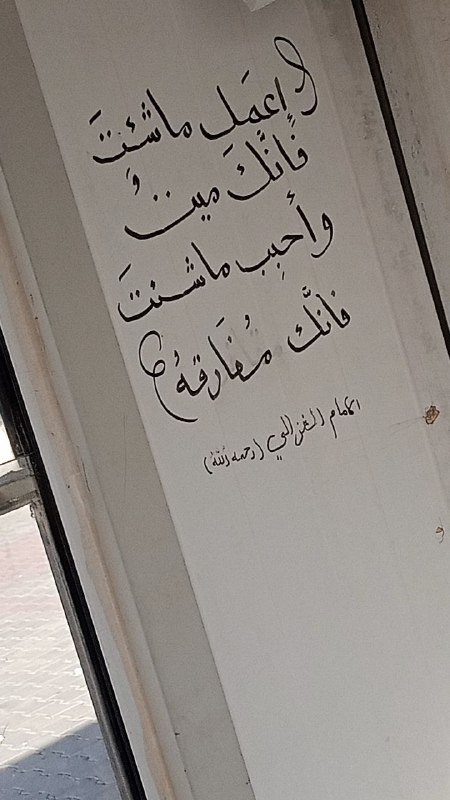 (إعمَل ما شئتَ
فأنَّكَ ميتٌ و
وأحبِب ما شئتَ
فانَّك مُفارقهُ)
الامام الغزالي (رحمه اللهُ)